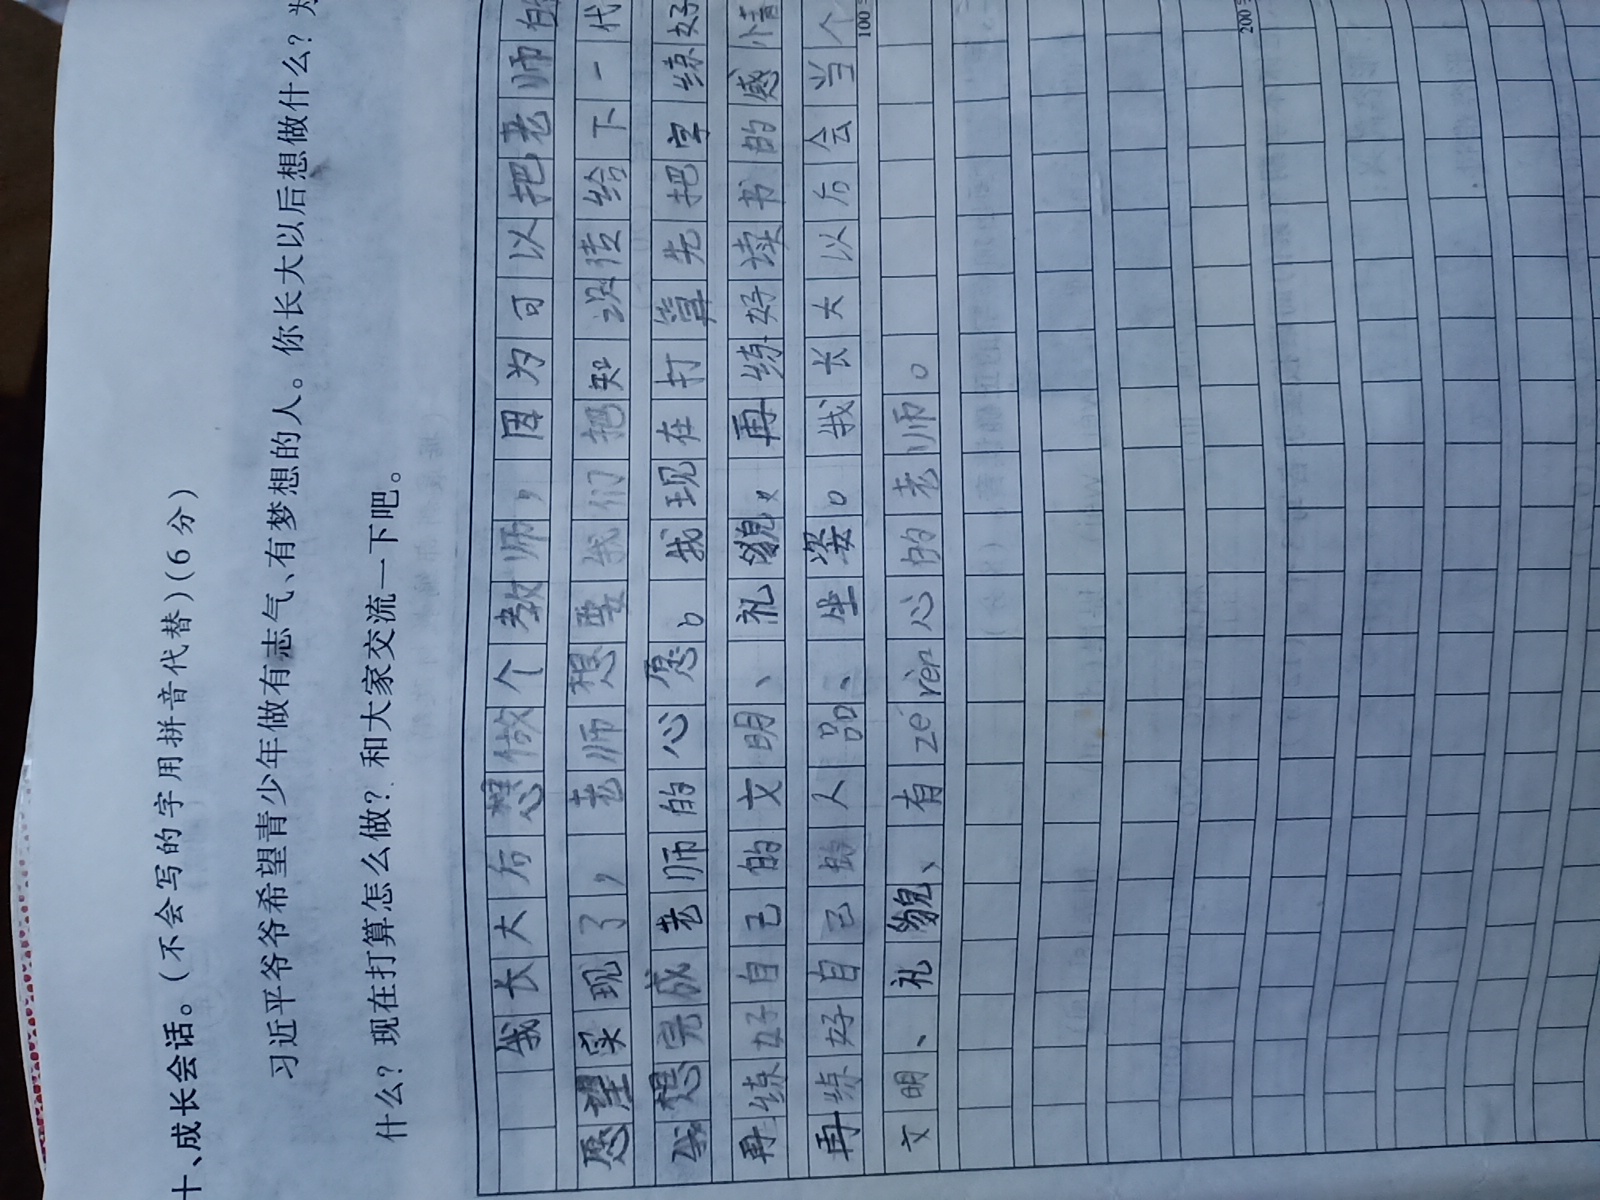 十、成长会话。(不会写的字用拼音代替)(6分)
习近平爷爷希望青少年做有志气、有梦想的人。你长大以后想做什么?为
什么?现在打算怎么做?和大家交流一下吧。
我长大后想做个教师,因为可以把老师的
愿望实现了,老师想要我们把知识传给下一代
我想完成老师的心愿。我现在打算先把字练好
再练好自己的文明、礼貌。再练好读书的感情
再练好自己的人品、坐姿。我长大以后会当个
100字
文明、礼貌、有zé rèn心的老师。
200字